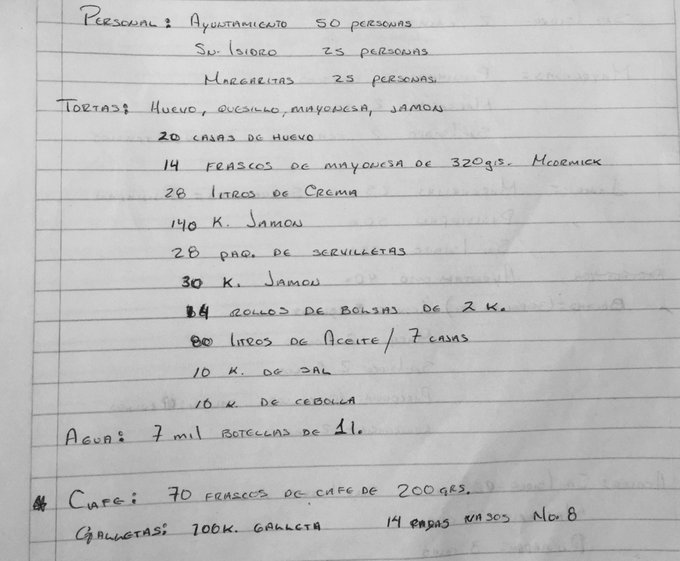 PERSONAL: AYUNTAMIENTO 50 PERSONAS
SN. ISIDRO 25 PERSONAS
MARGARITAS 25 PERSONAS
TORTAS: HUEVO, QUESILLO, MAYONESA, JAMON
20 CAJAS DE HUEVO
14 FRASCOS DE MAYONESA DE 320grs. MCORMICK
28 LITROS DE CREMA
140 K. JAMON
28 PAQ. DE SERVILLETAS
30 K. JAMON
14 ROLLOS DE BOLSAS DE 2 K.
80 LITROS DE ACEITE / 7 CAJAS
10 K. DE SAL
10 K. DE CEBOLLA
AGUA: 7 mil BOTELLAS DE 1l.
CAFE: 70 FRASCOS DE CAFE DE 200GRS.
GALLETAS: 100K. GALLETA 14 VASOS No. 8